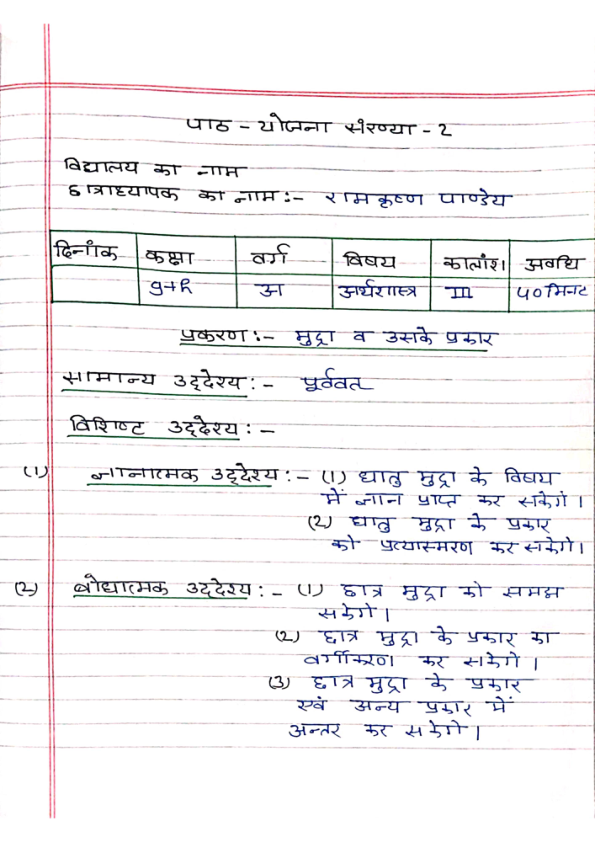 पाठ - योजना संख्या - 2
विद्यालय का नाम
छात्राध्यापक का नाम :- रामकृष्ण पाण्डेय
दिनांक कक्षा वर्ग विषय कालांश अवधि
9th अ अर्थशास्त्र III 40 मिनट
प्रकरण :- मुद्रा व उसके प्रकार
सामान्य उद्देश्य :- पूर्ववत
विशिष्ट उद्देश्य :-
(1) ज्ञानात्मक उद्देश्य :- (1) धातु मुद्रा के विषय
में ज्ञान प्राप्त कर सकेगें ।
(2) धातु मुद्रा के प्रकार
को प्रत्यास्मरण कर सकेगे ।
(2) बोधात्मक उद्देश्य :- (1) छात्र मुद्रा को समझ
सकेगे ।
(2) छात्र मुद्रा के प्रकार का
वर्गीकरण कर सकेगे ।
(3) छात्र मुद्रा के प्रकार
एवं अन्य प्रकार में
अन्तर कर सकेगे ।